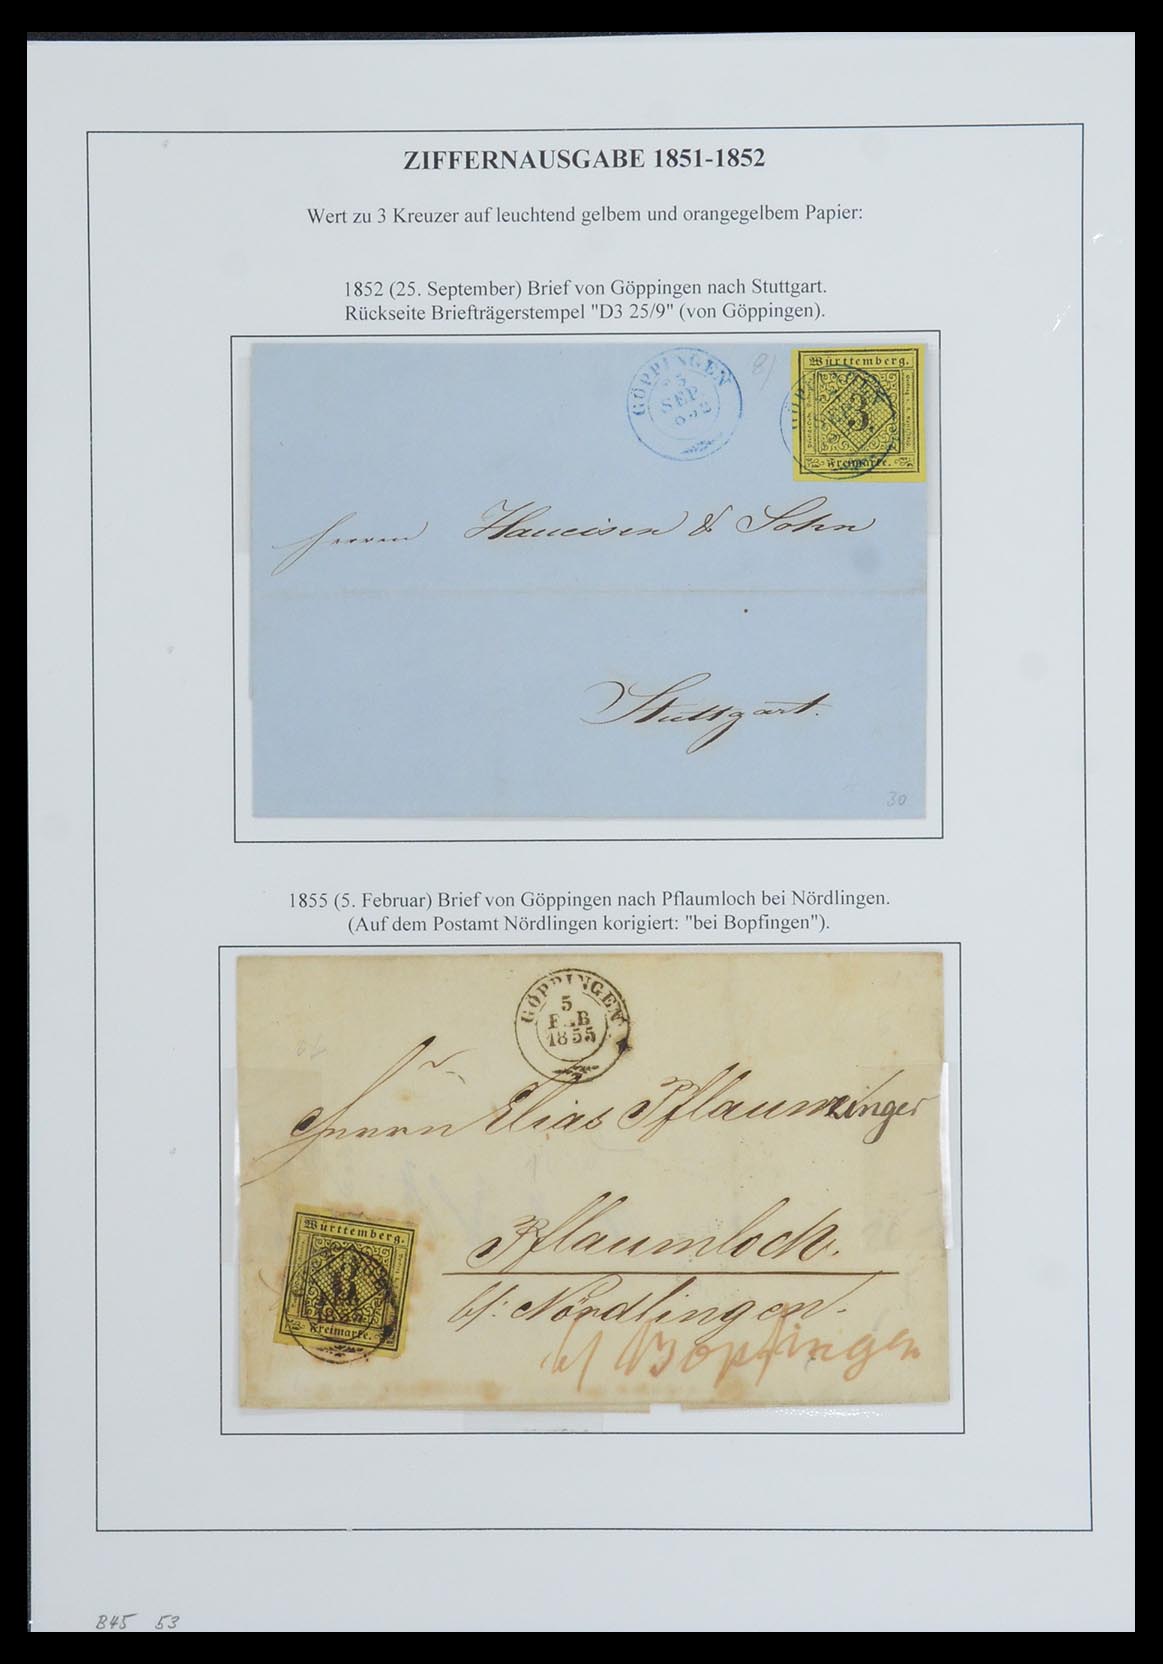 ZIFFERNAUSGABE 1851-1852
Wert zu 3 Kreuzer auf leuchtend gelbem und orangegelbem Papier:
1852 (25. September) Brief von Göppingen nach Stuttgart.
Rückseite Briefträgerstempel "D3 25/9" (von Göppingen).
GÖPPINGEN
SEP.
Württemberg.
3.
Freimarke.
Herren Haueisen & Sohn
Stuttgart.
30
1855 (5. Februar) Brief von Göppingen nach Pflaumloch bei Nördlingen.
(Auf dem Postamt Nördlingen korigiert: "bei Bopfingen").
GÖPPINGEN
5
FEB
1855
Herrn Elias Pflaum
Württemberg.
3.
Freimarke.
Pflaumloch.
b/: Nördlingen.
b/ Bopfingen
B45 53